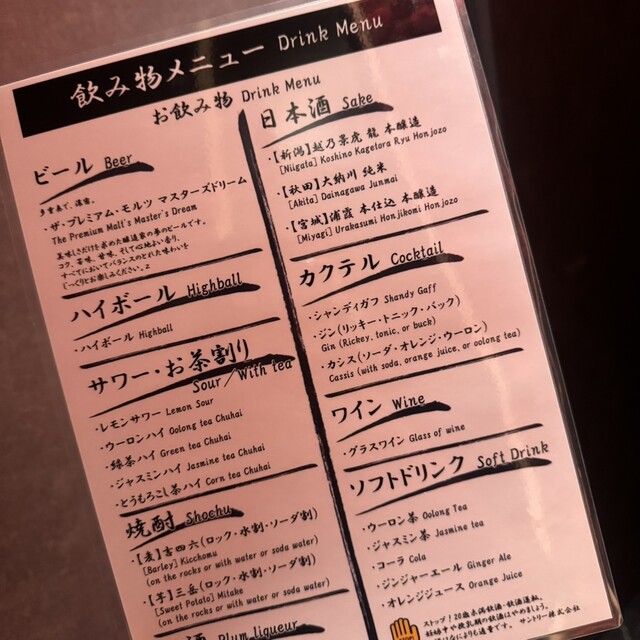 飲み物メニュー Drink Menu
お飲み物 Drink Menu
ビール Beer
多重奏で、濃密。
・ザ・プレミアム・モルツ マスターズドリーム
The Premium Malt's Master's Dream
美味しさだけを求めた醸造家の夢のビールです。
コク、苦味、甘味、そして心地よい香り、
すべてにおいてバランスのとれた味わいを
じっくりとお楽しみください。
ハイボール Highball
・ハイボール Highball
サワー・お茶割り
Sour／With tea
・レモンサワー Lemon Sour
・ウーロンハイ Oolong tea Chuhai
・緑茶ハイ Green tea Chuhai
・ジャスミンハイ Jasmine tea Chuhai
・とうもろこし茶ハイ Corn tea Chuhai
焼酎 Shochu
・【麦】吉四六(ロック・水割・ソーダ割)
[Barley] Kicchomu
(on the rocks or with water or soda water)
・【芋】三岳(ロック・水割・ソーダ割)
[Sweet Potato] Mitake
(on the rocks or with water or soda water)
酒 Plum liqueur
日本酒 Sake
・【新潟】越乃景虎 龍 本醸造
[Niigata] Koshino Kagetora Ryu Honjozo
・【秋田】大納川 純米
[Akita] Dainagawa Junmai
・【宮城】浦霞 本仕込 本醸造
[Miyagi] Urakasumi Honjikomi Honjozo
カクテル Cocktail
・シャンディガフ Shandy Gaff
・ジン(リッキー・トニック・バック)
Gin (Rickey, tonic, or buck)
・カシス(ソーダ・オレンジ・ウーロン)
Cassis (with soda, orange juice, or oolong tea)
ワイン Wine
・グラスワイン Glass of wine
ソフトドリンク Soft Drink
・ウーロン茶 Oolong Tea
・ジャスミン茶 Jasmine tea
・コーラ Cola
・ジンジャーエール Ginger Ale
・オレンジジュース Orange Juice
ストップ！20歳未満飲酒・飲酒運転。
妊娠中や授乳期の飲酒はやめましょう。
サントリー株式会社